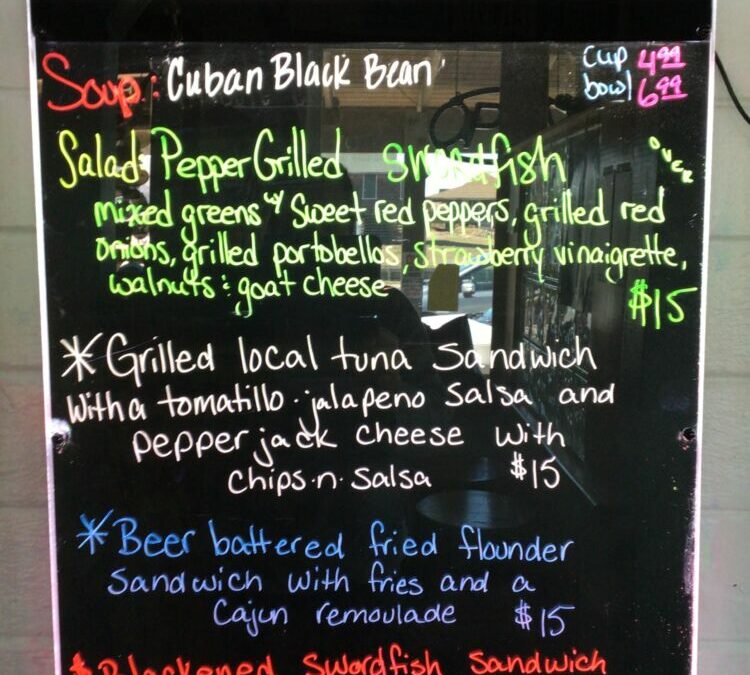 Soup: Cuban Black Bean cup 4.99
bowl 6.99
Salad: Pepper Grilled swordfish over
mixed greens w/ sweet red peppers, grilled red
onions, grilled portobellos, strawberry vinaigrette,
walnuts : goat cheese $15
* Grilled local tuna sandwich
with a tomatillo · jalapeno salsa and
pepper jack cheese with
chips · n · salsa $15
* Beer battered fried flounder
sandwich with fries and a
Cajun remoulade $15
* Blackened swordfish sandwich